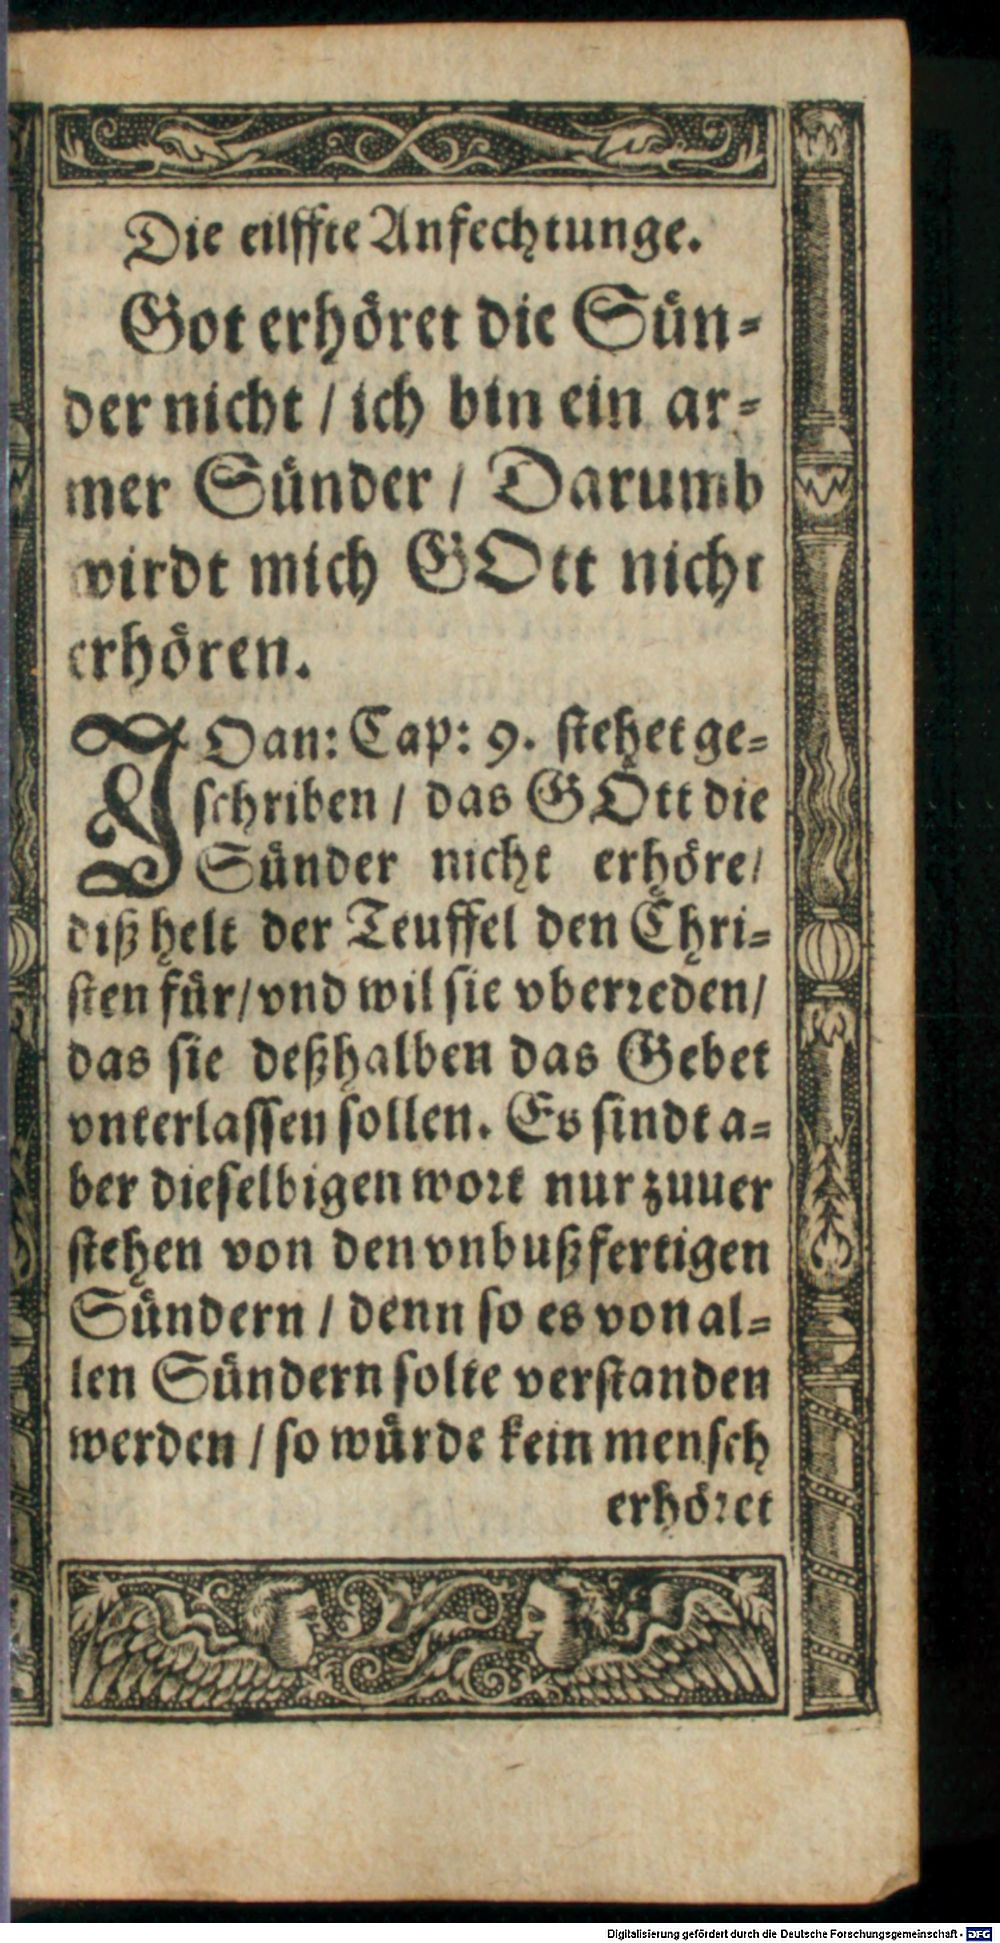 Die eilffte Anfechtunge.
Got erhöret die Sün-
der nicht / ich bin ein ar-
mer Sünder / Darumb
wirdt mich GOtt nicht
erhören.
JOan: Cap: 9. stehet ge-
schriben / das GOtt die
Sünder nicht erhöre/
diß helt der Teuffel den Chri-
sten für/ vnd wil sie vberreden/
das sie deßhalben das Gebet
vnterlassen sollen. Es sindt a-
ber dieselbigen wort nur zuuer
stehen von den vnbußfertigen
Sündern / denn so es von al-
len Sündern solte verstanden
werden / so würde kein mensch
erhöret
Digitalisierung gefördert durch die Deutsche Forschungsgemeinschaft - DFG